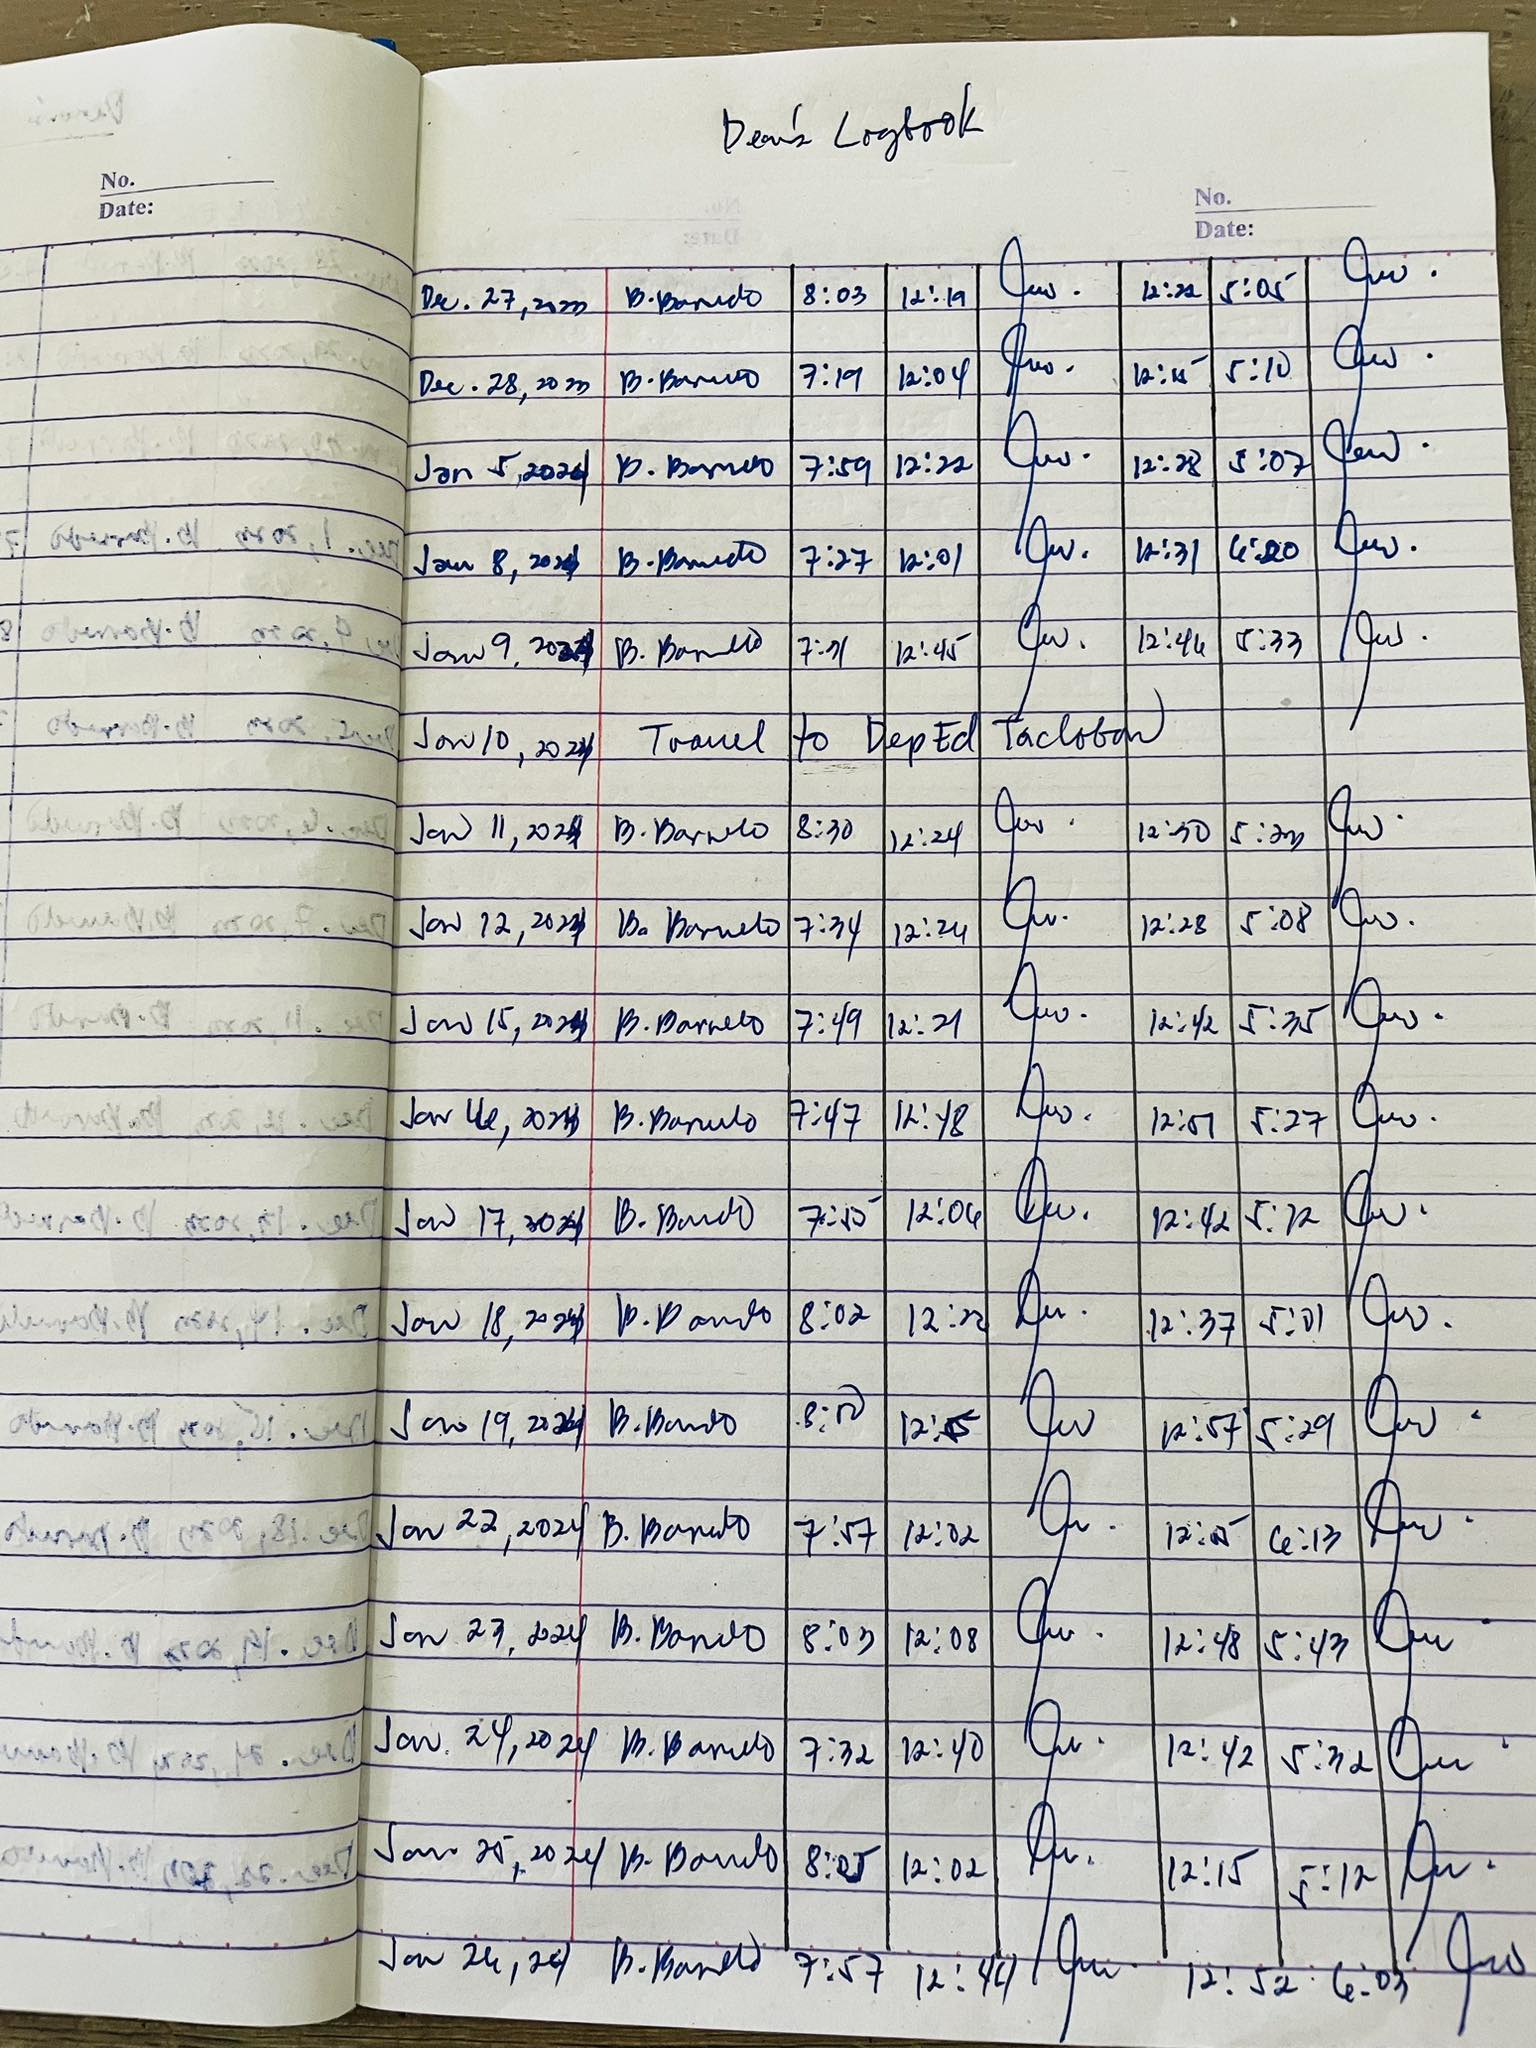 Dean's Logbook
No.
Date:
No.
Date:
Dec. 27, 2023 B. Barreto 8:03 12:19 12:22 5:05
Dec. 28, 2023 B. Barreto 7:19 12:04 12:15 5:10
Jan 5, 2024 B. Barreto 7:59 12:22 12:28 5:07
Jan 8, 2024 B. Barreto 7:27 12:01 12:31 6:20
Jan 9, 2024 B. Barreto 7:31 12:45 12:46 5:33
Jan 10, 2024 Travel to DepEd Tacloban
Jan 11, 2024 B. Barreto 8:30 12:24 12:30 5:23
Jan 12, 2024 B. Barreto 7:34 12:24 12:28 5:08
Jan 15, 2024 B. Barreto 7:49 12:21 12:42 5:35
Jan 16, 2024 B. Barreto 7:47 12:48 12:51 5:27
Jan 17, 2024 B. Barreto 7:55 12:06 12:42 5:12
Jan 18, 2024 B. Barreto 8:02 12:22 12:37 5:01
Jan 19, 2024 B. Barreto 12:57 5:29
Jan 22, 2024 B. Barreto 7:57 12:02 6:13
Jan 23, 2024 B. Barreto 8:03 12:08 12:48 5:43
Jan. 24, 2024 B. Barreto 7:32 12:40 12:42 5:32
Jan. 25, 2024 B. Barreto 8:05 12:02 12:15 5:12
Jan 26, 24 B. Barreto 7:57 12:44 12:52 6:03